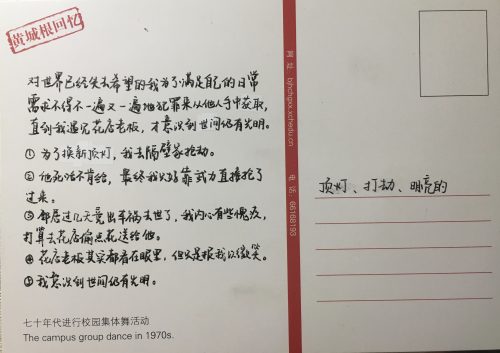 黄城根回忆
对世界已经失去希望的我为了满足自己的日常
需求不得不一遍又一遍地犯罪来从他人手中获取,
直到我遇见花店老板,才意识到世间仍有光明。
①为了换新顶灯,我去隔壁家抢劫。
②他死活不肯给,最终我只好靠武力直接抢了
过来。
③邻居过几天竟出车祸去世了,我内心有些愧疚,
打算去花店偷点花送给他。
④花店老板其实都看在眼里,但只是报我以微笑。
⑤我意识到世间仍有光明。
七十年代进行校园集体舞活动
The campus group dance in 1970s.
网址:
电话:66168193
顶灯、打劫、明亮的